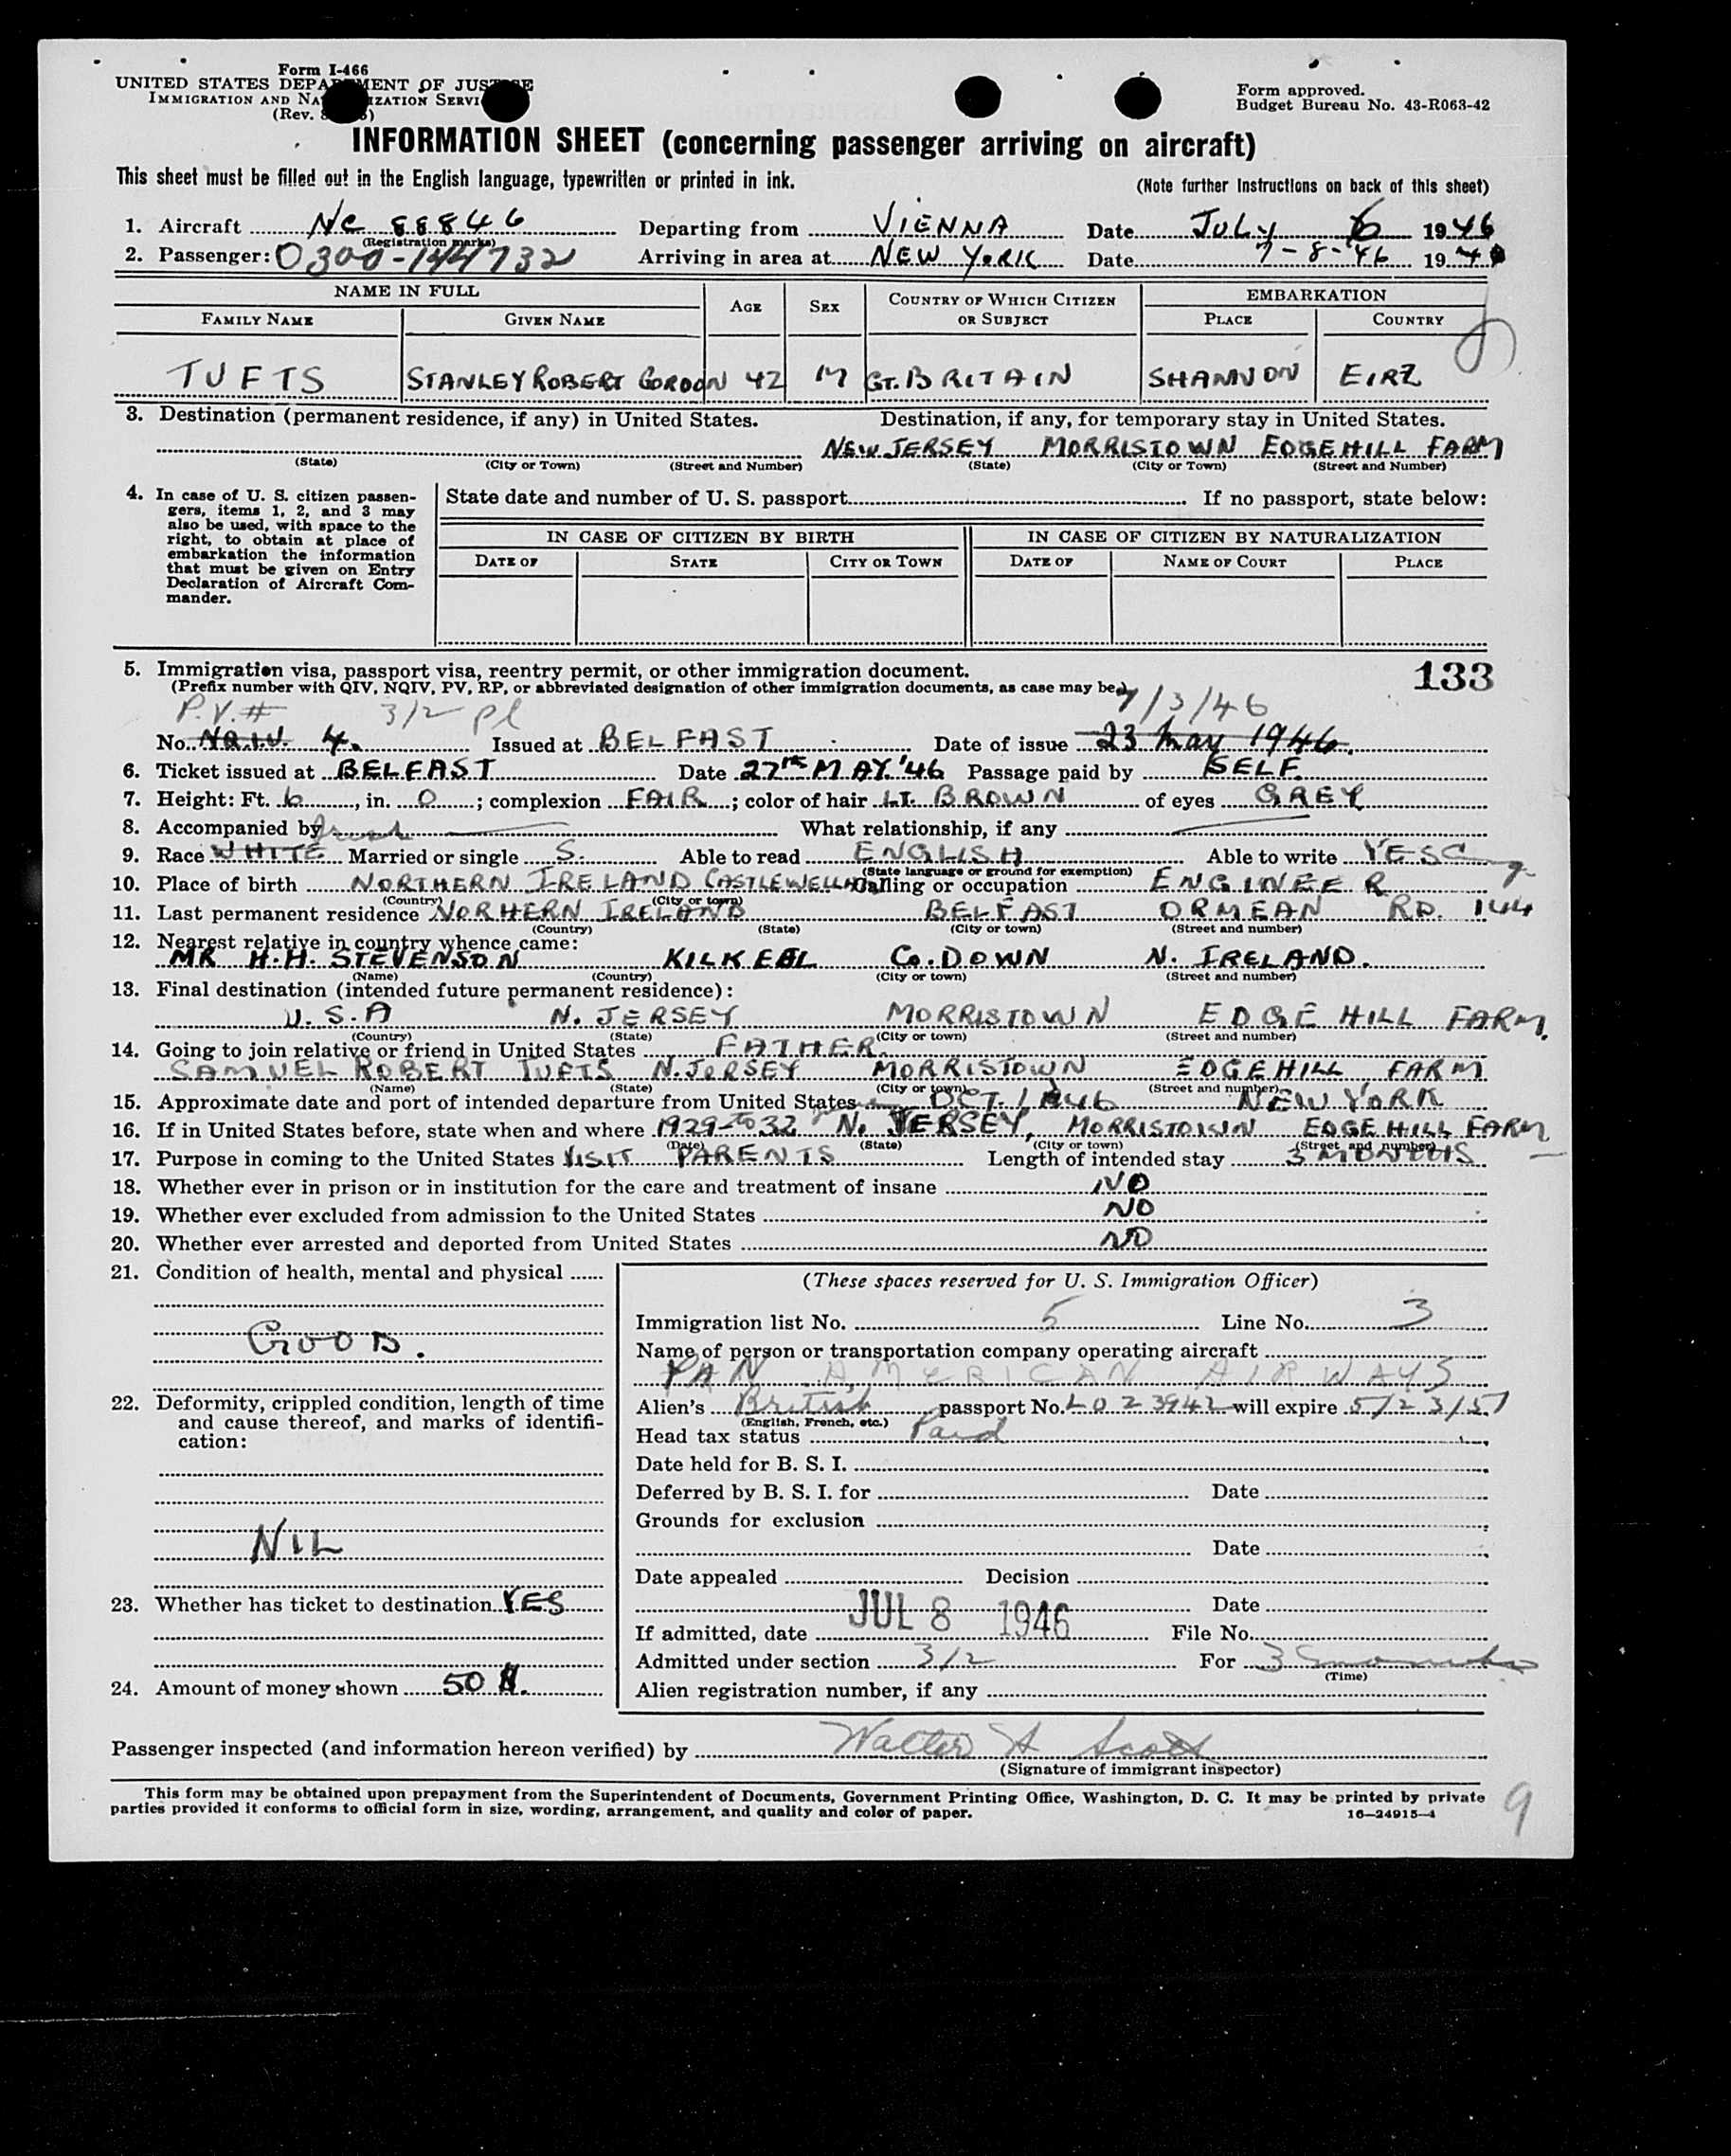 Form I-466
UNITED STATES DEPARTMENT OF JUSTICE
IMMIGRATION AND NATURALIZATION SERVICE
(Rev.
Form approved.
Budget Bureau No. 43-R063-42
INFORMATION SHEET (concerning passenger arriving on aircraft)
This sheet must be filled out in the English language, typewritten or printed in ink.
(Note further instructions on back of this sheet)
1. Aircraft NC 88846 Departing from VIENNA Date JULY 6 1946
(Registration marks)
2. Passenger: 0300-144732 Arriving in area at NEW YORK Date 7-8-46 194
NAME IN FULL AGE SEX COUNTRY OF WHICH CITIZEN OR SUBJECT EMBARKATION
FAMILY NAME GIVEN NAME PLACE COUNTRY
TUFTS STANLEY ROBERT GORDON 42 M GT. BRITAIN SHANNON EIRE
3. Destination (permanent residence, if any) in United States. Destination, if any, for temporary stay in United States.
NEW JERSEY MORRISTOWN EDGEHILL FARM
(State) (City or Town) (Street and Number) (State) (City or Town) (Street and Number)
4. In case of U. S. citizen passengers, items 1, 2, and 3 may also be used, with space to the right, to obtain at place of embarkation the information that must be given on Entry Declaration of Aircraft Commander.
State date and number of U. S. passport If no passport, state below:
IN CASE OF CITIZEN BY BIRTH IN CASE OF CITIZEN BY NATURALIZATION
DATE OF STATE CITY OR TOWN DATE OF NAME OF COURT PLACE
5. Immigration visa, passport visa, reentry permit, or other immigration document. 133
(Prefix number with QIV, NQIV, PV, RP, or abbreviated designation of other immigration documents, as case may be.)
P.V.# 3/2 pl 7/3/46
No. N.Q.I.V. 4. Issued at BELFAST Date of issue 23 May 1946.
6. Ticket issued at BELFAST Date 27TH MAY '46 Passage paid by SELF
7. Height: Ft. 6, in. 0; complexion FAIR; color of hair LT. BROWN of eyes GREY
8. Accompanied by What relationship, if any
9. Race WHITE Married or single S. Able to read ENGLISH Able to write YES
(State language or ground for exemption)
10. Place of birth NORTHERN IRELAND CASTLEWELLAN Calling or occupation ENGINEER
(Country) (City or town)
11. Last permanent residence NORHERN IRELAND BELFAST ORMEAN RD. 144
(Country) (State) (City or town) (Street and number)
12. Nearest relative in country whence came:
MR H.H. STEVENSON KILKEEL Co. DOWN N. IRELAND.
(Name) (Country) (City or town) (Street and number)
13. Final destination (intended future permanent residence):
U.S.A N. JERSEY MORRISTOWN EDGE HILL FARM.
(Country) (State) (City or town) (Street and number)
14. Going to join relative or friend in United States FATHER.
SAMUEL ROBERT TUFTS N. JERSEY MORRISTOWN EDGEHILL FARM
(Name) (State) (City or town) (Street and number)
15. Approximate date and port of intended departure from United States OCT. 1946 NEW YORK
16. If in United States before, state when and where 1929 to 32 N. JERSEY, MORRISTOWN EDGE HILL FARM
(Date) (State) (City or town) (Street and number)
17. Purpose in coming to the United States VISIT PARENTS Length of intended stay 3 MONTHS
18. Whether ever in prison or in institution for the care and treatment of insane NO
19. Whether ever excluded from admission to the United States NO
20. Whether ever arrested and deported from United States NO
21. Condition of health, mental and physical
GOOD.
22. Deformity, crippled condition, length of time and cause thereof, and marks of identification:
NIL
23. Whether has ticket to destination YES
24. Amount of money shown 50
(These spaces reserved for U. S. Immigration Officer)
Immigration list No. 5 Line No. 3
Name of person or transportation company operating aircraft
PAN AMERICAN AIRWAYS
Alien's British passport No. L023942 will expire 5/23/51
(English, French, etc.)
Head tax status Paid
Date held for B. S. I.
Deferred by B. S. I. for Date
Grounds for exclusion
Date
Date appealed Decision
Date
If admitted, date JUL 8 1946 File No.
Admitted under section 3/2 For 3 months
(Time)
Alien registration number, if any
Passenger inspected (and information hereon verified) by Walter A Scott
(Signature of immigrant inspector)
This form may be obtained upon prepayment from the Superintendent of Documents, Government Printing Office, Washington, D. C. It may be printed by private
parties provided it conforms to official form in size, wording, arrangement, and quality and color of paper. 16—24915-4
9